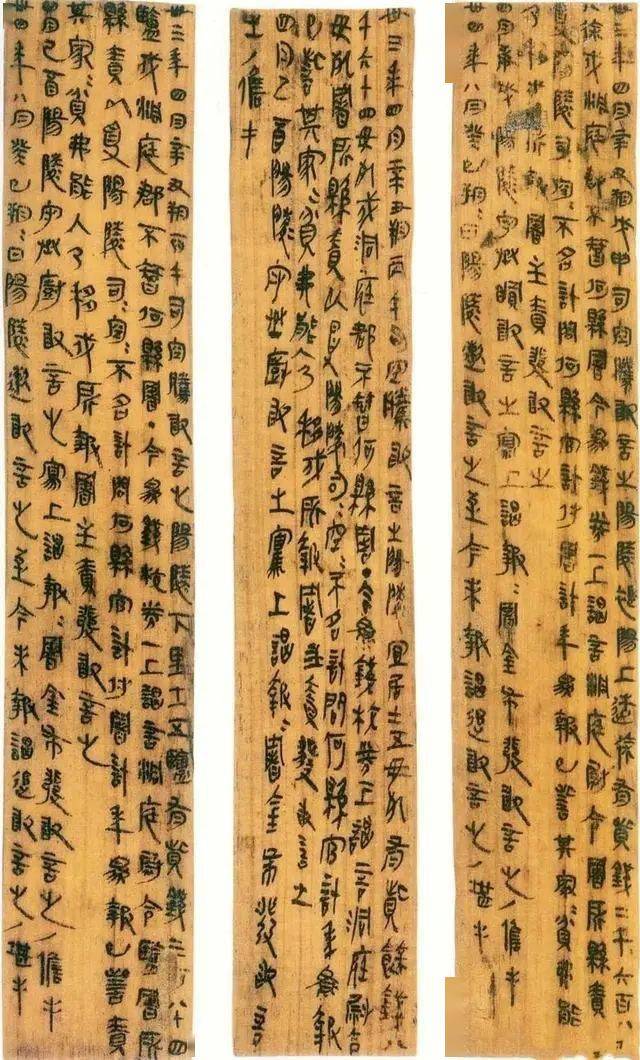 卅三年四月辛丑朔戊申司空騰敢言之陽陵褆陽上造徐有貲錢二千六百八十
八徐戍洞庭郡不智何縣署今為錢券一上謁言洞庭尉令署所縣責
以受陽陵司空=不名計問何縣官計付署計年為報已訾其家=貧弗能
入乃移戍所報署主責發敢言之
四月庚戌陽陵守丞敢言之寫上謁報=署金布發敢言之/儋手
卅四年八月癸巳朔=日陽陵遬敢言之至今未報謁追敢言之/堪手
卅三年四月辛丑朔丙午司空騰敢言之陽陵宜居士五毋死有貲餘錢八
千六十四毋死戍洞庭郡不智何縣署·今為錢校券一上謁言洞庭尉令
毋死署所縣責以受陽陵司空=不名計問何縣官計年為報
已訾其家=貧弗能入乃移戍所報署主責發敢言之
四月己酉陽陵守丞廚敢言之寫上謁報=署金布發敢言
之/儋手
卅三年四月辛丑朔丙午司空騰敢言之陽陵下里士五鹽有貲錢三百八十四
鹽戍洞庭郡不智何縣署·今為錢校券一上謁言洞庭尉令鹽署所
縣責以受陽陵司空=不名計問何縣官計付署計年為報已訾責
其家=貧弗能入乃移戍所報署主責發敢言之
四月己酉陽陵守丞廚敢言之寫上謁報=署金布發敢言之/儋手
卅四年八月癸巳朔=日陽陵遬敢言之至今未報謁追敢言之/堪手